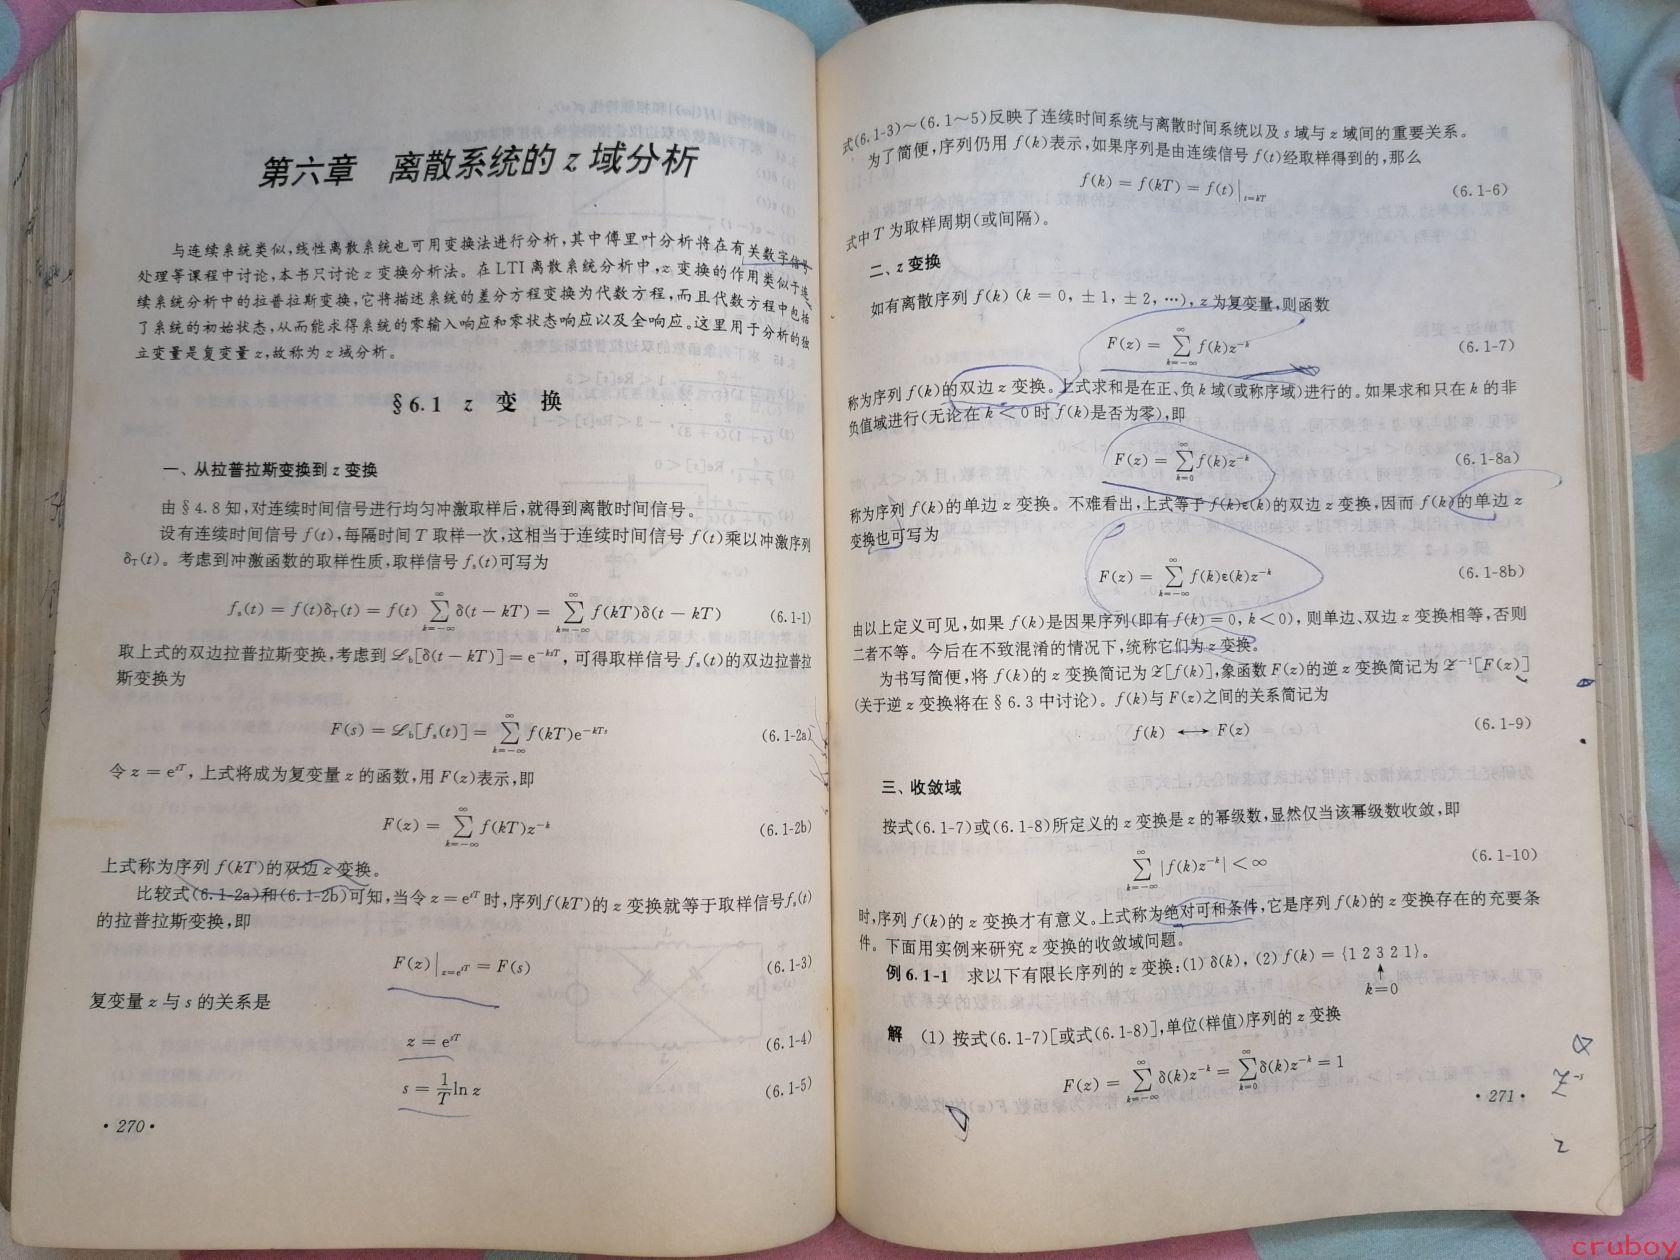 第六章 离散系统的 z 域分析
与连续系统类似,线性离散系统也可用变换法进行分析,其中傅里叶分析将在有关数字信号
处理等课程中讨论,本书只讨论 z 变换分析法。在 LTI 离散系统分析中,z 变换的作用类似于连
续系统分析中的拉普拉斯变换,它将描述系统的差分方程变换为代数方程,而且代数方程中包括
了系统的初始状态,从而能求得系统的零输入响应和零状态响应以及全响应。这里用于分析的独
立变量是复变量 z,故称为 z 域分析。
§6.1 z 变 换
一、从拉普拉斯变换到 z 变换
由 §4.8 知,对连续时间信号进行均匀冲激取样后,就得到离散时间信号。
设有连续时间信号 f(t),每隔时间 T 取样一次,这相当于连续时间信号 f(t)乘以冲激序列
δ_T(t)。考虑到冲激函数的取样性质,取样信号 f_s(t)可写为
f_s(t) = f(t)δ_T(t) = f(t) ∑_{k=-∞}^{∞} δ(t − kT) = ∑_{k=-∞}^{∞} f(kT)δ(t − kT) (6.1-1)
取上式的双边拉普拉斯变换,考虑到 ℒ_b[δ(t − kT)] = e^{-ksT},可得取样信号 f_s(t)的双边拉普拉
斯变换为
F(s) = ℒ_b[f_s(t)] = ∑_{k=-∞}^{∞} f(kT)e^{-kTs} (6.1-2a)
令 z = e^{sT},上式将成为复变量 z 的函数,用 F(z)表示,即
F(z) = ∑_{k=-∞}^{∞} f(kT)z^{-k} (6.1-2b)
上式称为序列 f(kT)的双边 z 变换。
比较式(6.1-2a)和(6.1-2b)可知,当令 z = e^{sT} 时,序列f(kT)的 z 变换就等于取样信号f_s(t)
的拉普拉斯变换,即
F(z)|_{z=e^{sT}} = F(s) (6.1-3)
复变量 z 与 s 的关系是
z = e^{sT} (6.1-4)
s = 1/T ln z (6.1-5)
·270·
式(6.1-3)～(6.1～5)反映了连续时间系统与离散时间系统以及 s 域与 z 域间的重要关系。
为了简便,序列仍用 f(k)表示,如果序列是由连续信号 f(t)经取样得到的,那么
f(k) = f(kT) = f(t)|_{t=kT} (6.1-6)
式中 T 为取样周期(或间隔)。
二、z 变换
如有离散序列 f(k) (k = 0, ± 1, ± 2, …), z 为复变量,则函数
F(z) = ∑_{k=-∞}^{∞} f(k)z^{-k} (6.1-7)
称为序列 f(k)的双边 z 变换。上式求和是在正、负 k 域(或称序域)进行的。如果求和只在 k 的非
负值域进行(无论在 k < 0 时 f(k)是否为零),即
F(z) = ∑_{k=0}^{∞} f(k)z^{-k} (6.1-8a)
称为序列 f(k)的单边 z 变换。不难看出,上式等于 f(k)ε(k)的双边 z 变换,因而 f(k)的单边 z
变换也可写为
F(z) = ∑_{k=-∞}^{∞} f(k)ε(k)z^{-k} (6.1-8b)
由以上定义可见,如果 f(k)是因果序列(即有 f(k) = 0, k<0),则单边、双边 z 变换相等,否则
二者不等。今后在不致混淆的情况下,统称它们为 z 变换。
为书写简便,将 f(k)的 z 变换简记为 𝒵[f(k)],象函数 F(z)的逆 z 变换简记为 𝒵^{-1}[F(z)]
(关于逆 z 变换将在 §6.3 中讨论)。f(k)与 F(z)之间的关系简记为
f(k) ⟷ F(z) (6.1-9)
三、收敛域
按式(6.1-7)或(6.1-8)所定义的 z 变换是 z 的幂级数,显然仅当该幂级数收敛,即
∑_{k=-∞}^{∞} |f(k)z^{-k}| < ∞ (6.1-10)
时,序列 f(k)的 z 变换才有意义。上式称为绝对可和条件,它是序列 f(k)的 z 变换存在的充要条
件。下面用实例来研究 z 变换的收敛域问题。
例 6.1-1 求以下有限长序列的 z 变换;(1) δ(k), (2) f(k) = {1 2 3 2 1}。
↑
k=0
解 (1) 按式(6.1-7)[或式(6.1-8)],单位(样值)序列的 z 变换
F(z) = ∑_{k=-∞}^{∞} δ(k)z^{-k} = ∑_{k=0}^{∞} δ(k)z^{-k} = 1
·271·
cruboy